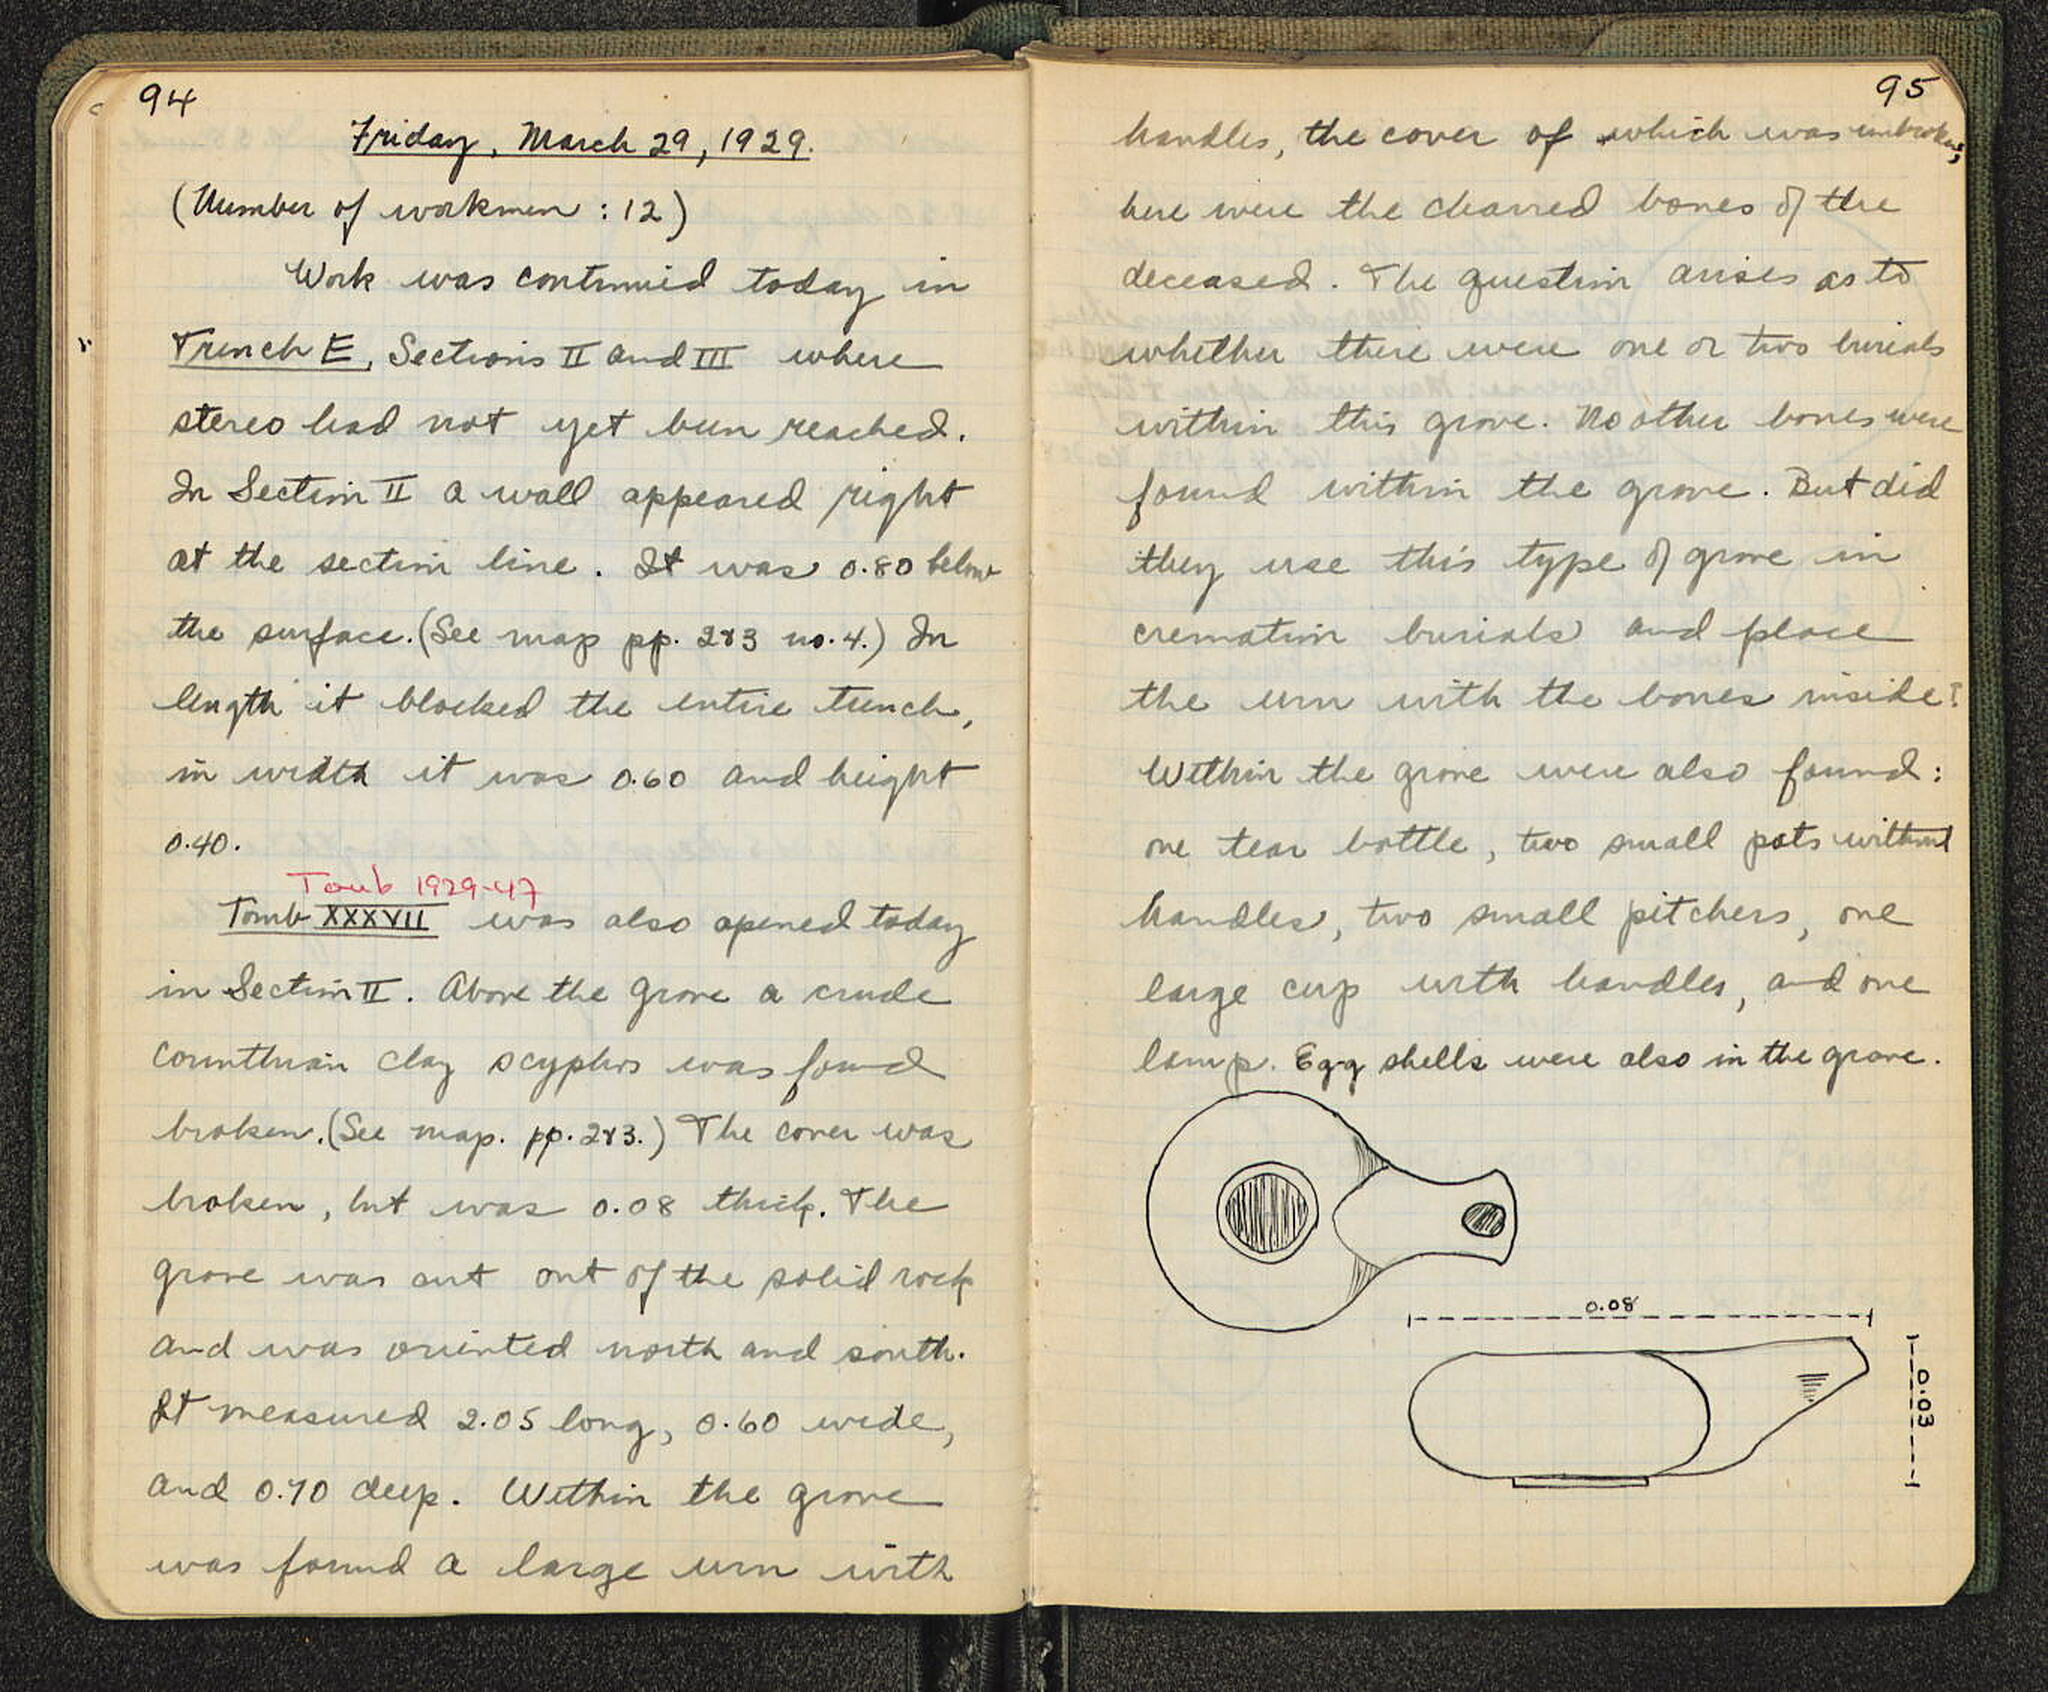 94
Friday, March 29, 1929.
(Number of workmen : 12)
Work was continued today in
Trench E, Sections II and III where
stereo had not yet been reached.
In Section II a wall appeared right
at the section line. It was 0.80 below
the surface. (See map pp. 2&3 no. 4.) In
length it blocked the entire trench,
in width it was 0.60 and height
0.40.
Tomb 1929-47
Tomb XXXVII was also opened today
in Section II. Above the grave a crude
Corinthian clay scyphos was found
broken. (See map. pp. 2&3.) The cover was
broken, but was 0.08 thick. The
grave was cut out of the solid rock
and was oriented north and south.
It measured 2.05 long, 0.60 wide,
and 0.70 deep. Within the grave
was found a large urn with
95
handles, the cover of which was unbroken;
here were the charred bones of the
deceased. The question arises as to
whether there were one or two burials
within this grave. No other bones were
found within the grave. But did
they use this type of grave in
cremation burials and place
the urn with the bones inside?
Within the grave were also found:
one tear bottle, two small pots without
handles, two small pitchers, one
large cup with handles, and one
lamp. Egg shells were also in the grave.
0.08
0.03